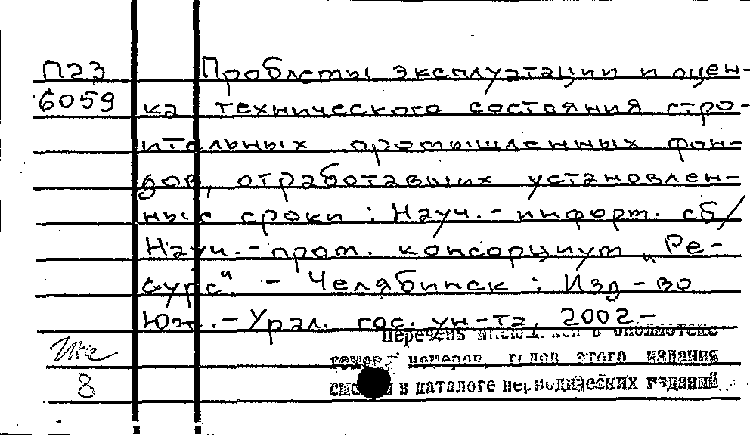 П23 Проблемы эксплуатации и оцен-
6059 ка технического состояния стро-
ительных промышленных фон-
дов, отработавших установлен-
ные сроки : Науч.-информ. сб /
Науч.-пром. консорциум „Ре-
сурс“. - Челябинск : Изд-во
Юж.-Урал. гос. ун-та, 2002.-
Перечень в библиотеке
номеров, годов этого издания
8 в каталоге периодических изданий